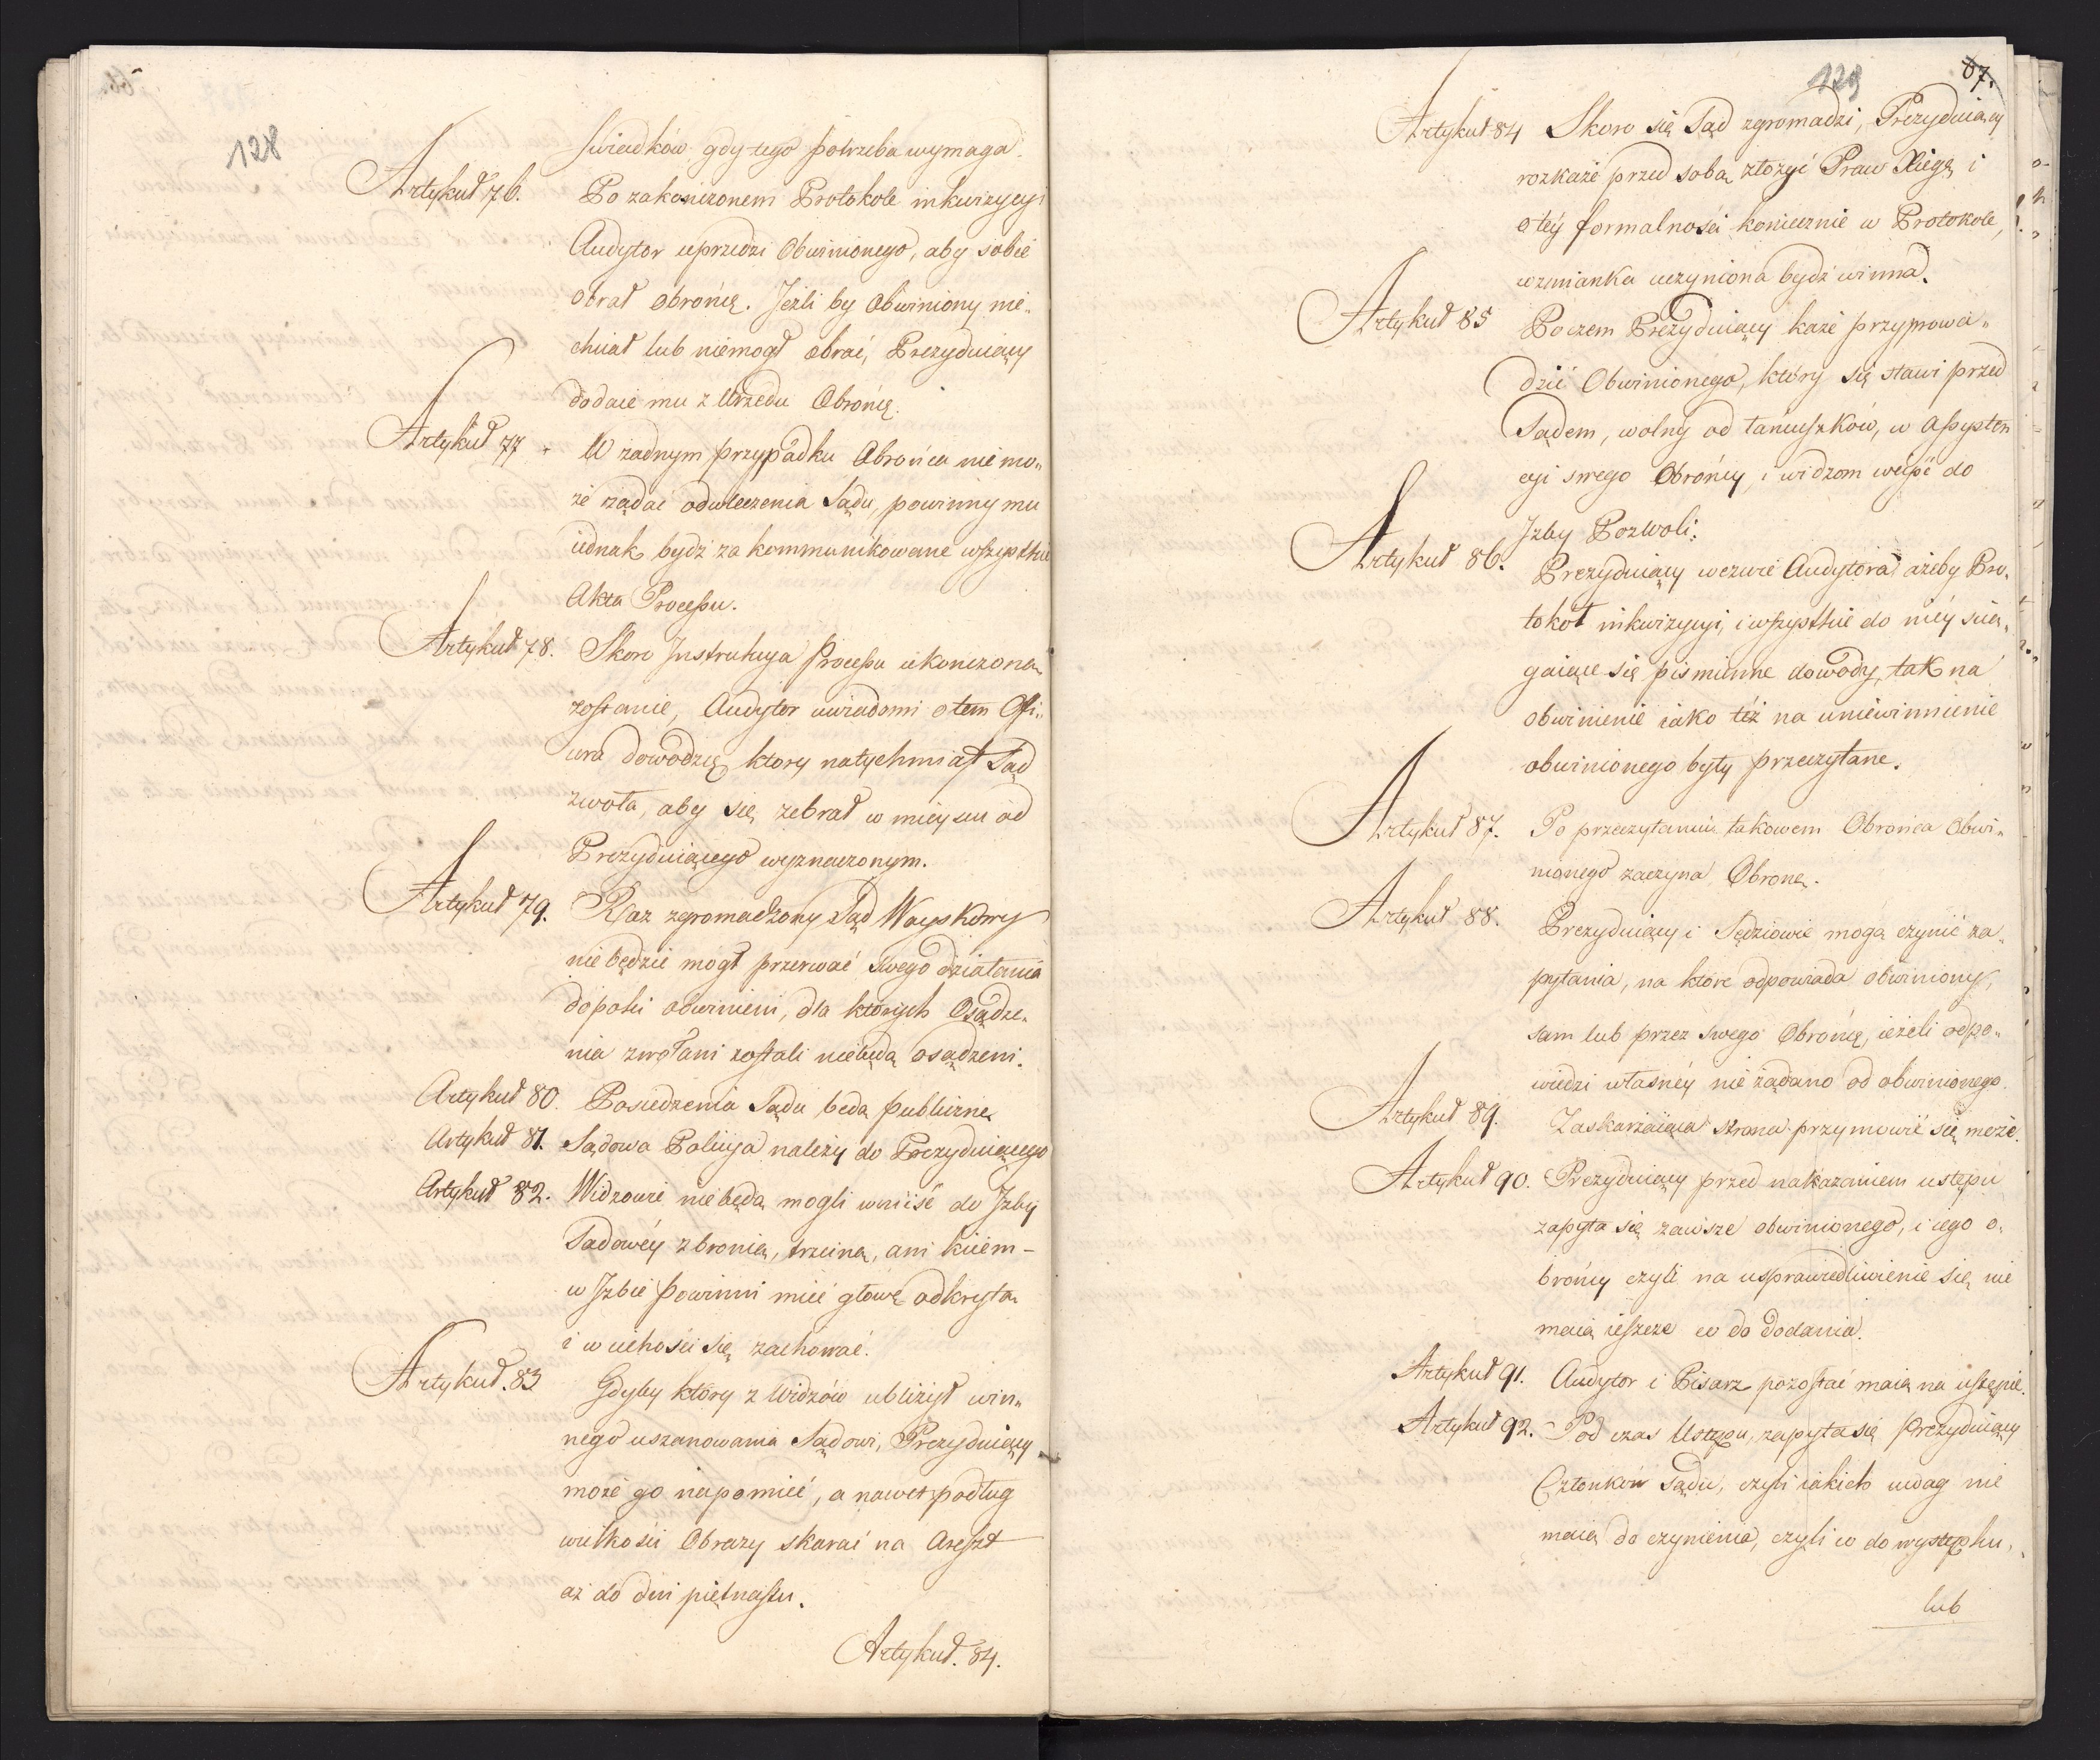 128
Swiadków gdy tego potrzeba wymaga.
Artykuł 76. Po zakończonem Protokole inkwizycyi
Audytor uprzedzi Obwinionego, aby sobie
obrał obrońcę. Jeżli by Obwiniony nie„
chciał lub niemogł obrać, Prezyduiący
dodaie mu z Urzędu Obrońcę.
Artykuł 77 W żadnym przypadku Obrońca nie mo„
że żądać odwleczenia Sądu, powinny mu
iednak bydź zakommunikowane wszystkie
Akta Processu.
Artykuł 78. Skoro Instrukcya Processu ukonczona
zostanie, Audytor uwiadomi o tem Offi„
cera dowodzcę, ktory natychmiast Sąd
zwoła, aby się zebrał w mieyscu od
Prezyduiącego wyznaczonym.
Artykuł 79. Raz zgromadzony Sąd Woyskowy
nie będzie mogł przerwać swego działania
dopoki obwinieni, dla których Osądze„
nia zwołani zostali niebędą osądzeni.
Artykuł 80. Posiedzenia Sądu będą publiczne
Artykuł 81. Sądowa Policyja należy do Prezyduiącego
Artykuł 82. Widzowie niebędą mogli wniiść do Izby
Sądowéy z bronią, trzciną, ani kiiem –
w Izbie powinni mieć głowę odkrytą
i w cichości się zachować.
Artykuł. 83 Gdyby który z Widzów ubliżył win„
nego uszanowania Sądowi, Prezyduiący
może go napomnieć, a nawet podług
wielkości Obrazy skarać na Areszt
aż do dni piętnastu.
Artykuł. 84.
129
67.
Artykuł 84 Skoro się Sąd zgromadzi, Prezyduiący
rozkaże przed sobą złożyć Praw Xięgę i
o téy formalności koniecznie w Protokole,
wzmianka uczyniona bydź winna.
Artykuł 85 Poczem Prezyduiący każe przyprowa„
dzić Obwinionego, który się stawi przed
Sądem, wolny od łańcuszków, w assysten
cyi swego Obrońcy, i widzom weyść do
Izby Pozwoli.
Artykuł 86. Prezyduiący wezwie Audytora ażeby Pro„
tokoł inkwizycyi, i wszystkie do niéy ścią„
gaiące się piśmienne dowody, tak na
obwinienie iako téż na uniewinnienie
obwinionego były przeczytane.
Artykuł 87. Po przeczytaniu takowem Obrońca Obwi„
nionego zaczyna Obronę.
Artykuł 88. Prezyduiący i Sędziowie mogą czynić za„
pytania, na które odpowiada obwiniony,
sam lub przez swego Obrońcę, ieżeli odpo„
wiedzi własnéy nie żądano od obwinionego.
Artykuł 89. Zaskarżaiąca strona przymowić się może.
Artykuł 90. Prezyduiący przed nakazaniem ustępu
zapyta się zawsze obwinionego, i iego o„
brońcy czyli na usprawiedliwienie się nie
maią ieszcze co do dodania.
Artykuł 91. Audytor i Pisarz pozostać maią na ustępie.
Artykuł 92. Pod czas Ustępu, zapyta się Prezyduiący
Członków Sądu, czyli iakich uwag nie
maią do czynienia, czyli co do występku,
lub